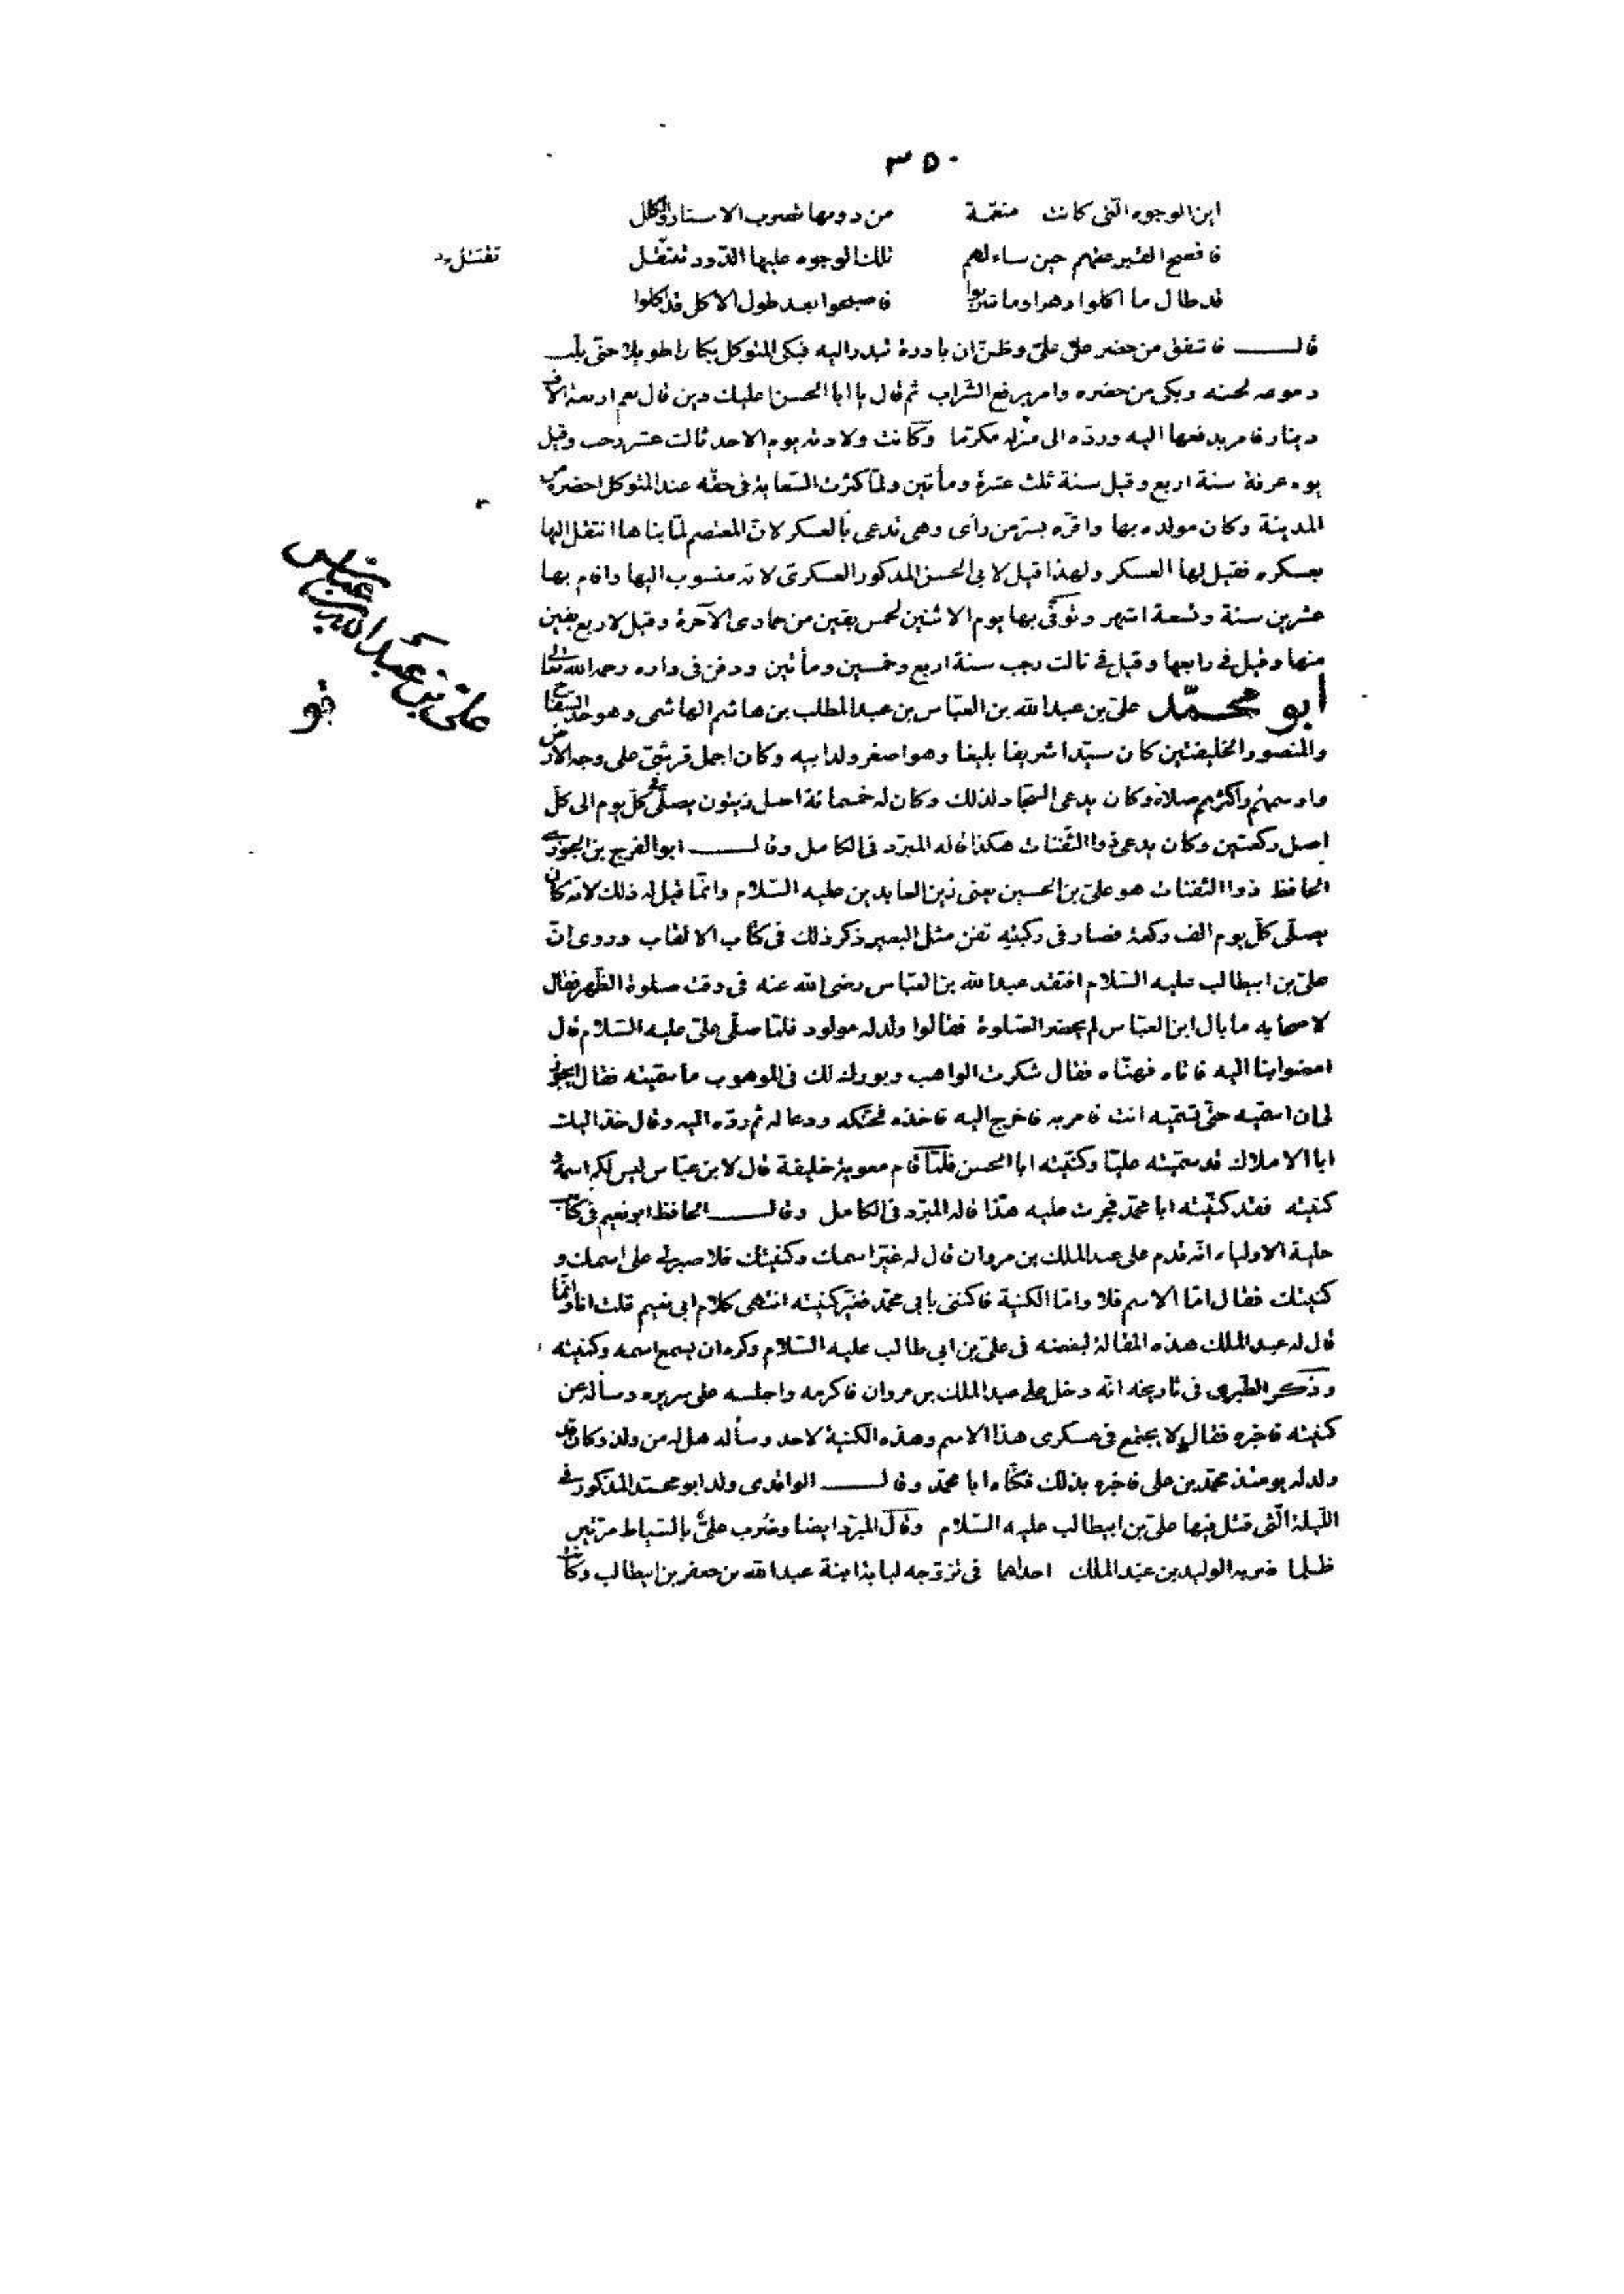 ٣٥٠
اين الوجوه التى كانت منعمة من دونها تضرب الاستار والكلل
فافصح القبر عنهم حين ساءلهم تلك الوجوه عليها الدّود تنتقل
تقتتل
قد طال ما اكلوا دهرا وما شربوا فاصبحوا بعد طول الاكل قد اكلوا
قال فاشفق من حضر على علىّ وظنّ ان بادرة تبدر اليه فبكى المتوكل بكاء طويلا حتى بلّت
دموعه لحيته وبكى من حضره وامر برفع الشّراب ثم قال يا ابا الحسن اعليك دين قال نعم اربعة الاف
دينار فامر بدفعها اليه وردّه الى منزله مكرّما وكانت ولادته يوم الاحد ثالث عشر رجب وقيل
يوم عرفة سنة اربع وقيل سنة ثلث عشرة ومأتين ولمّا كثرت السّعاية فى حقّه عند المتوكل احضره من
المدينة وكان مولده بها واقرّه بسرّ من رأى وهى تدعى بالعسكر لانّ المعتصم لمّا بناها انتقل اليها
بعسكره فقيل لها العسكر ولهذا قيل لابى الحسن المذكور العسكرىّ لانه منسوب اليها واقام بها
عشرين سنة وتسعة اشهر وتوفّى بها يوم الاثنين لخمس بقين من جمادى الآخرة وقيل لاربع بقين
منها وقيل فى رابعها وقيل فى ثالث رجب سنة اربع وخمسين ومأتين ودفن فى داره رحمه الله تعالى
ابو محمّد علىّ بن عبدالله بن العبّاس بن عبدالمطلب بن هاشم الهاشمى وهو جدّ السفّاح
علىّ بن عبد الله بن عبّاس
والمنصور الخليفتين كان سيّدا شريفا بليغا وهو اصغر ولد ابيه وكان اجمل قرشىّ على وجه الارض
واوسمهم واكثرهم صلاة وكان يدعى السجّاد لذلك وكان له خمسمائة اصل زيتون يصلّى فى كلّ يوم الى كلّ
اصل ركعتين وكان يدعى ذوا الثّفنات هكذا قاله المبرّد فى الكامل وقال ابو الفرج بن الجوزى
الحافظ ذوا الثفنات هو علىّ بن الحسين يعنى زين العابدين عليه السّلام وانّما قيل له ذلك لانّه كان
يصلّى كلّ يوم الف ركعة فصار فى ركبتيه ثفن مثل البعير ذكر ذلك فى كتاب الالقاب وروى انّ
علىّ بن ابيطالب عليه السّلام افتقد عبدالله بن العبّاس رضى الله عنه فى وقت صلوة الظّهر فقال
لاصحابه ما بال ابن العبّاس لم يحضر الصّلوة فقالوا ولد له مولود فلمّا صلّى علىّ عليه السّلام قال
امضوا بنا اليه فاتاه فهنّاه فقال شكرت الواهب وبورك لك فى الموهوب ما سمّيته فقال ايجوز
لى ان اسمّيه حتّى تسمّيه انت فامر به فاخرج اليه فاخذه فحنّكه ودعا له ثم ردّه اليه وقال خذ اليك
ابا الاملاك قد سمّيته عليّا وكنّيته ابا الحسن فلمّا قام معوية خليفة قال لابن عبّاس ليس لكم اسمه و
كنيته فقد كنّيته ابا محمّد فجرت عليه هذا قاله المبرّد فى الكامل وقال الحافظ ابو نعيم فى كتاب
حلية الاولياء انّه قدم على عبدالملك بن مروان قال له غيّر اسمك وكنيتك فلا صبر لى على اسمك و
كنيتك فقال امّا الاسم فلا وامّا الكنية فاكتنى بابى محمّد فغيّر كنيته انتهى كلام ابى نعيم قلت انا وانّما
قال له عبدالملك هذه المقالة لبغضه فى علىّ بن ابى طالب عليه السّلام وكره ان يسمع اسمه وكنيته
وذكر الطّبرى فى تاريخه انّه دخل على عبدالملك بن مروان فاكرمه واجلسه على سريره وسأله عن
كنيته فاخبره فقال لا يجتمع فى عسكرى هذا الاسم وهذه الكنية لاحد وسأله هل له من ولد وكان قد
ولد له يومئذ محمّد بن على فاخبره بذلك فكنّاه ابا محمّد وقال الواقدى ولد ابو محمّد المذكور فى
اللّيلة الّتى قتل فيها علىّ بن ابيطالب عليه السّلام وقال المبرّد ايضا وضرب علىّ بالسّياط مرّتين
ظلما ضربه الوليد بن عبدالملك احداهما فى تزوّجه لبابة ابنة عبدالله بن جعفر بن ابيطالب وكانت